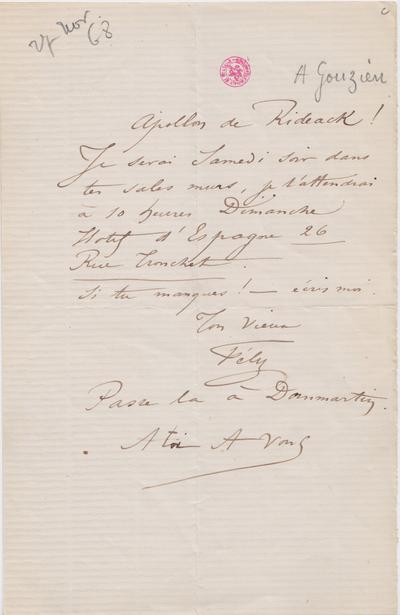 27 nov.
68
A Gouzien
Apollon de Rideack !
Je serai Samedi soir dans
tes sales murs, je t'attendrai
à 10 heures Dimanche
Hotel d'Espagne 26
Rue Tronchet.
Si tu manques ! — écris moi.
Ton Vieux
Fély
Passe la à Dommartin.
A toi A Vous